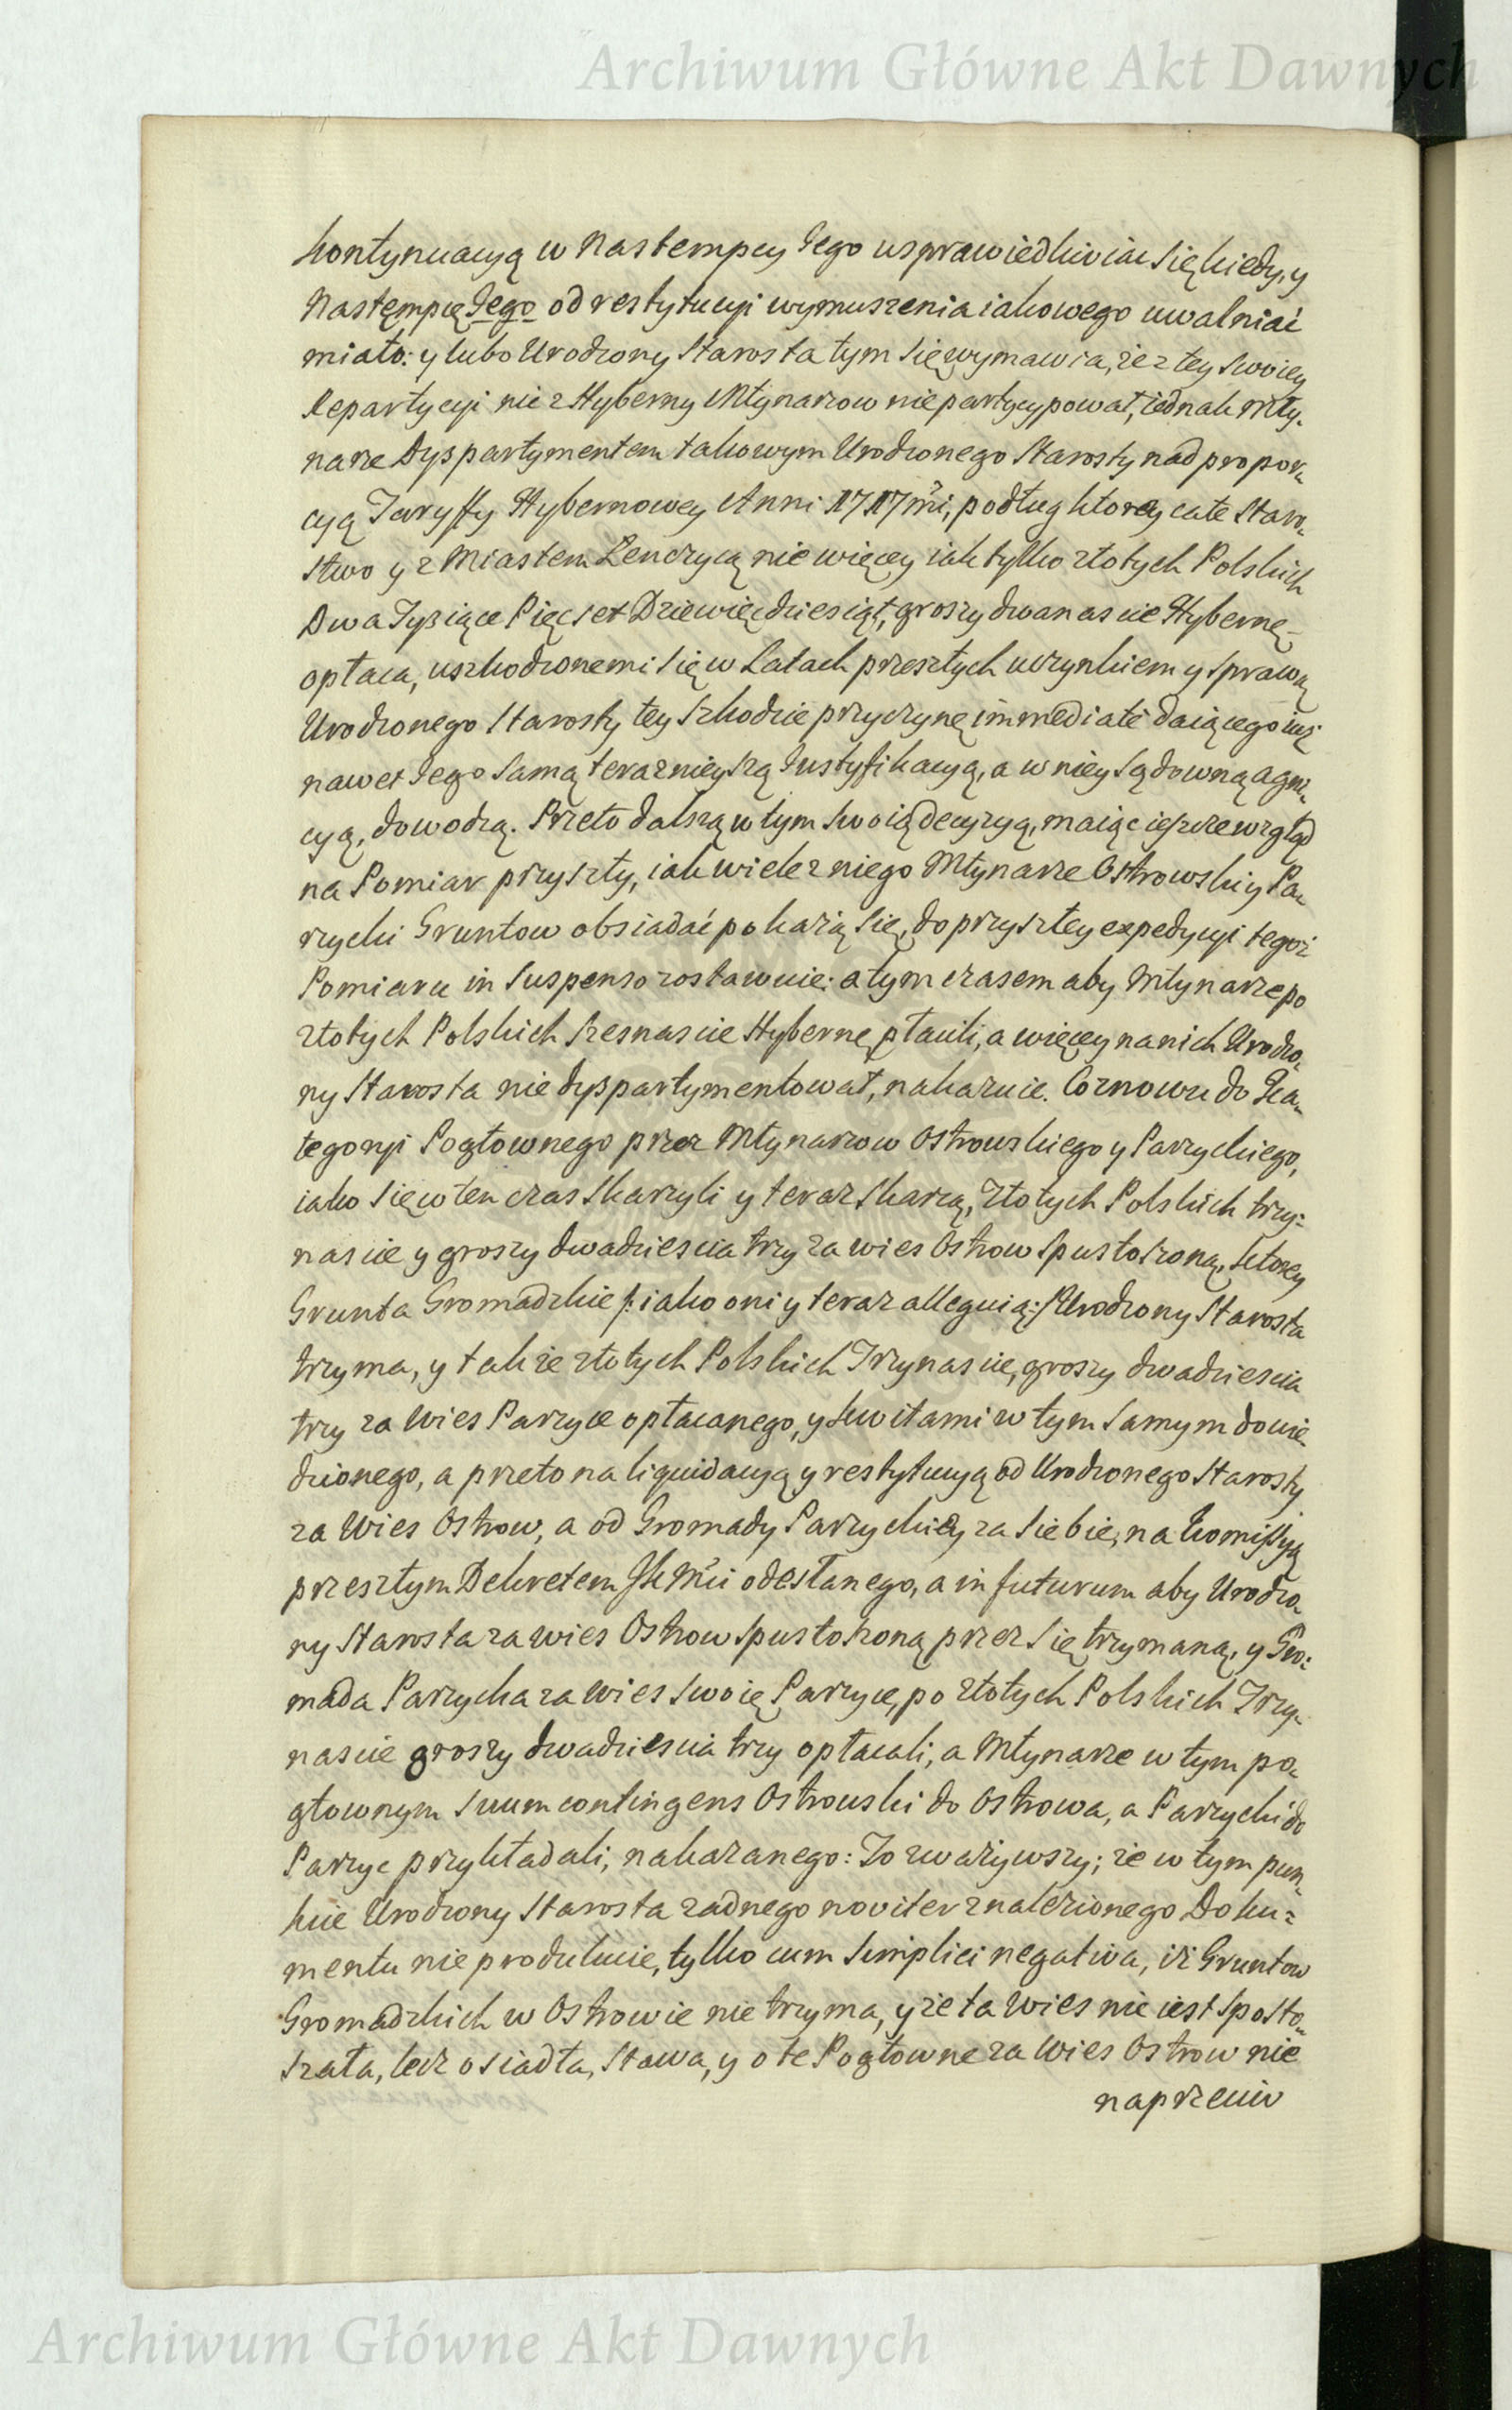 Archiwum Główne Akt Dawnych
kontynuacyą w Nastempcy Jego usprawiedliwiać się kiedy, y
Nastęmpcę Jego od restytucyi wymuszenia iakowego uwalniać
miało: y lubo Urodzony Starosta tym się wymawia, że z tey swoiey
Repartycyi nic z Hyberny Młynarzow nie partycypował, iednak Mły-
narze Dyspartymentem takowym Urodzonego Starosty nad propor-
cyą Taryffy Hybernowey Anni 1717mi, podług ktorey całe Staro-
stwo y z Miastem Lenczycą nie więcey iak tylko złotych Polskich
Dwa Tysiące Pięcset Dziewięcdziesiąt, groszy dwanascie Hybernę
opłaca, uszkodzonemi się w Latach przeszłych uczynkiem y sprawą
Urodzonego Starosty tey szkodzie przyczynę immediatè daiącego iuż
nawet Jego samą teraznieyszą Justyfikacyą, a w niey sądowną agni-
cyą, dowodzą. Przeto dalszą w tym swoią decyzyą, maiąc ieszcze wzgląd
na Pomiar przyszły, iak wiele z niego Młynarze Ostrowski y Pa-
rzycki Gruntow obsiadać pokażą się, do przyszłey expedycyi tegoż
Pomiaru in Suspenso zostawuie: a tym czasem aby Młynarze po
złotych Polskich szesnascie Hybernę płacili, a więcey na nich Urodzo-
ny Starosta nie dyspartymentował, nakazuie. Co znowu do Ka-
tegoryi Pogłownego przez Młynarzow Ostrowskiego y Parzyckiego,
iako się w ten czas skarzyli y teraz skarzą, złotych Polskich trzy-
nascie y groszy dwadziescia trzy za wies Ostrow spustoszoną, ktorey
Grunta Gromadzkie /: iako oni y teraz alleguią :/ Urodzony Starosta
trzyma, y także złotych Polskich Trzynascie, groszy dwadziescia
trzy za Wies Parzyce opłacanego, y kwitami w tym samym dowie-
dzionego, a przeto na liquidacyą y restytucyą od Urodzonego Starosty
za Wies Ostrow, a od Gromady Parzyckiey za siebie, na Kommissyą
przeszłym Dekretem odesłanego, a in futurum aby Urodzo-
ny Starosta za wies Ostrow spustoszoną przez się trzymaną, y Gro-
mada Parzycka za wies swoię Parzyce, po złotych Polskich Trzy-
nascie groszy dwadziescia trzy opłacali, a Młynarze w tym po-
głownym suum contingens Ostrowski do Ostrowa, a Parzycki do
Parzyc przykładali, nakazanego: To zważywszy; że w tym pun-
kcie Urodzony Starosta zadnego noviter znalezionego Doku-
mentu nie produkuie, tylko cum simplici negativa, iż Gruntow
Gromadzkich w Ostrowie nie trzyma, y że ta Wies nie iest sposto-
szała, lecz osiadła, stawa, y o te Pogłowne za Wies Ostrow nie
naprzeciw
Archiwum Główne Akt Dawnych